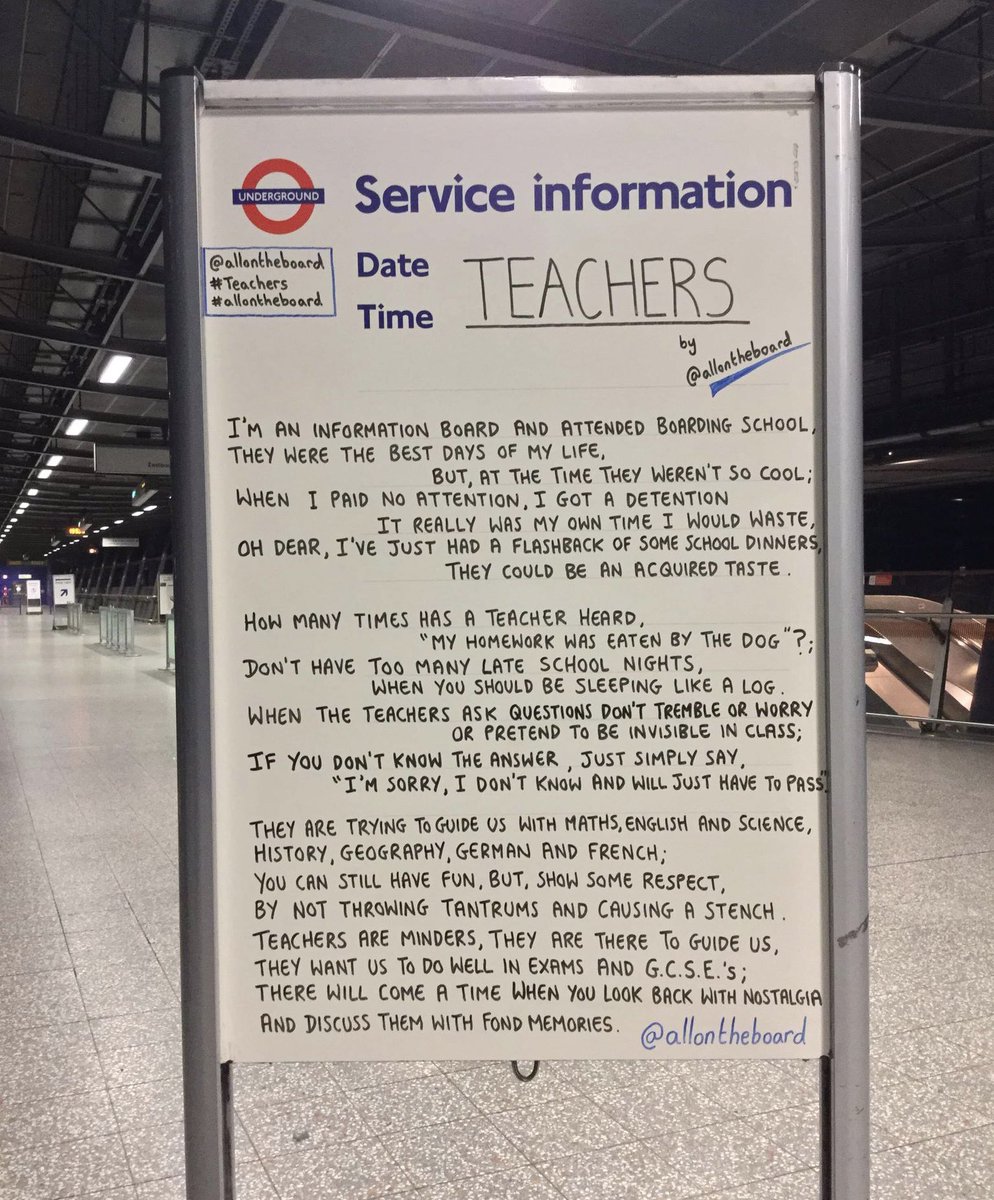 UNDERGROUND
Service information
@allontheboard
#Teachers
#allontheboard
Date
Time
TEACHERS
by
@allontheboard
I'M AN INFORMATION BOARD AND ATTENDED BOARDING SCHOOL,
THEY WERE THE BEST DAYS OF MY LIFE,
BUT, AT THE TIME THEY WEREN'T SO COOL;
WHEN I PAID NO ATTENTION, I GOT A DETENTION
IT REALLY WAS MY OWN TIME I WOULD WASTE,
OH DEAR, I'VE JUST HAD A FLASHBACK OF SOME SCHOOL DINNERS,
THEY COULD BE AN ACQUIRED TASTE.
HOW MANY TIMES HAS A TEACHER HEARD,
"MY HOMEWORK WAS EATEN BY THE DOG"?;
DON'T HAVE TOO MANY LATE SCHOOL NIGHTS,
WHEN YOU SHOULD BE SLEEPING LIKE A LOG.
WHEN THE TEACHERS ASK QUESTIONS DON'T TREMBLE OR WORRY
OR PRETEND TO BE INVISIBLE IN CLASS;
IF YOU DON'T KNOW THE ANSWER, JUST SIMPLY SAY,
"I'M SORRY, I DON'T KNOW AND WILL JUST HAVE TO PASS".
THEY ARE TRYING TO GUIDE US WITH MATHS, ENGLISH AND SCIENCE,
HISTORY, GEOGRAPHY, GERMAN AND FRENCH;
YOU CAN STILL HAVE FUN, BUT, SHOW SOME RESPECT,
BY NOT THROWING TANTRUMS AND CAUSING A STENCH.
TEACHERS ARE MINDERS, THEY ARE THERE TO GUIDE US,
THEY WANT US TO DO WELL IN EXAMS AND G.C.S.E.'s;
THERE WILL COME A TIME WHEN YOU LOOK BACK WITH NOSTALGIA
AND DISCUSS THEM WITH FOND MEMORIES.
@allontheboard